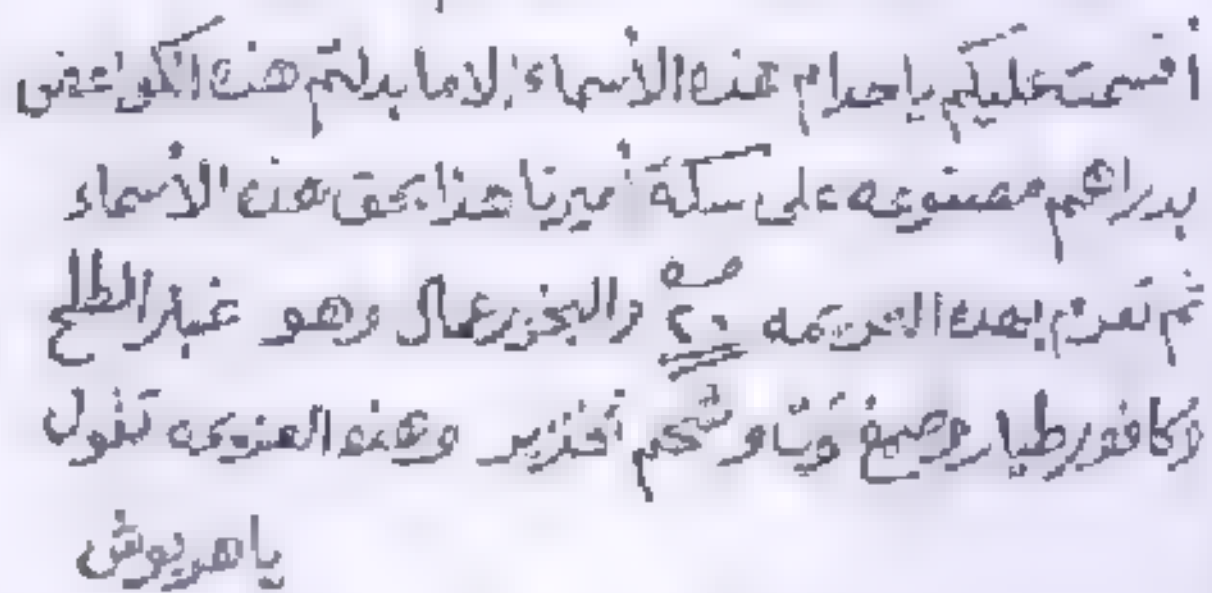 أقسمت عليكم ياخدام هذه الأسماء إلا ما بدلتم هذه الكواغض
بدراهم مصنوعه على سكة أميرنا هذا بحق هذه الأسماء
ثم تعزم بهذه العزيمه ٢٠ مره والبخور عمال وهو غبار الطلح
وكافور طيار وصمغ وشحم خنزير وهذه العزيمه تقول
ياهريوش